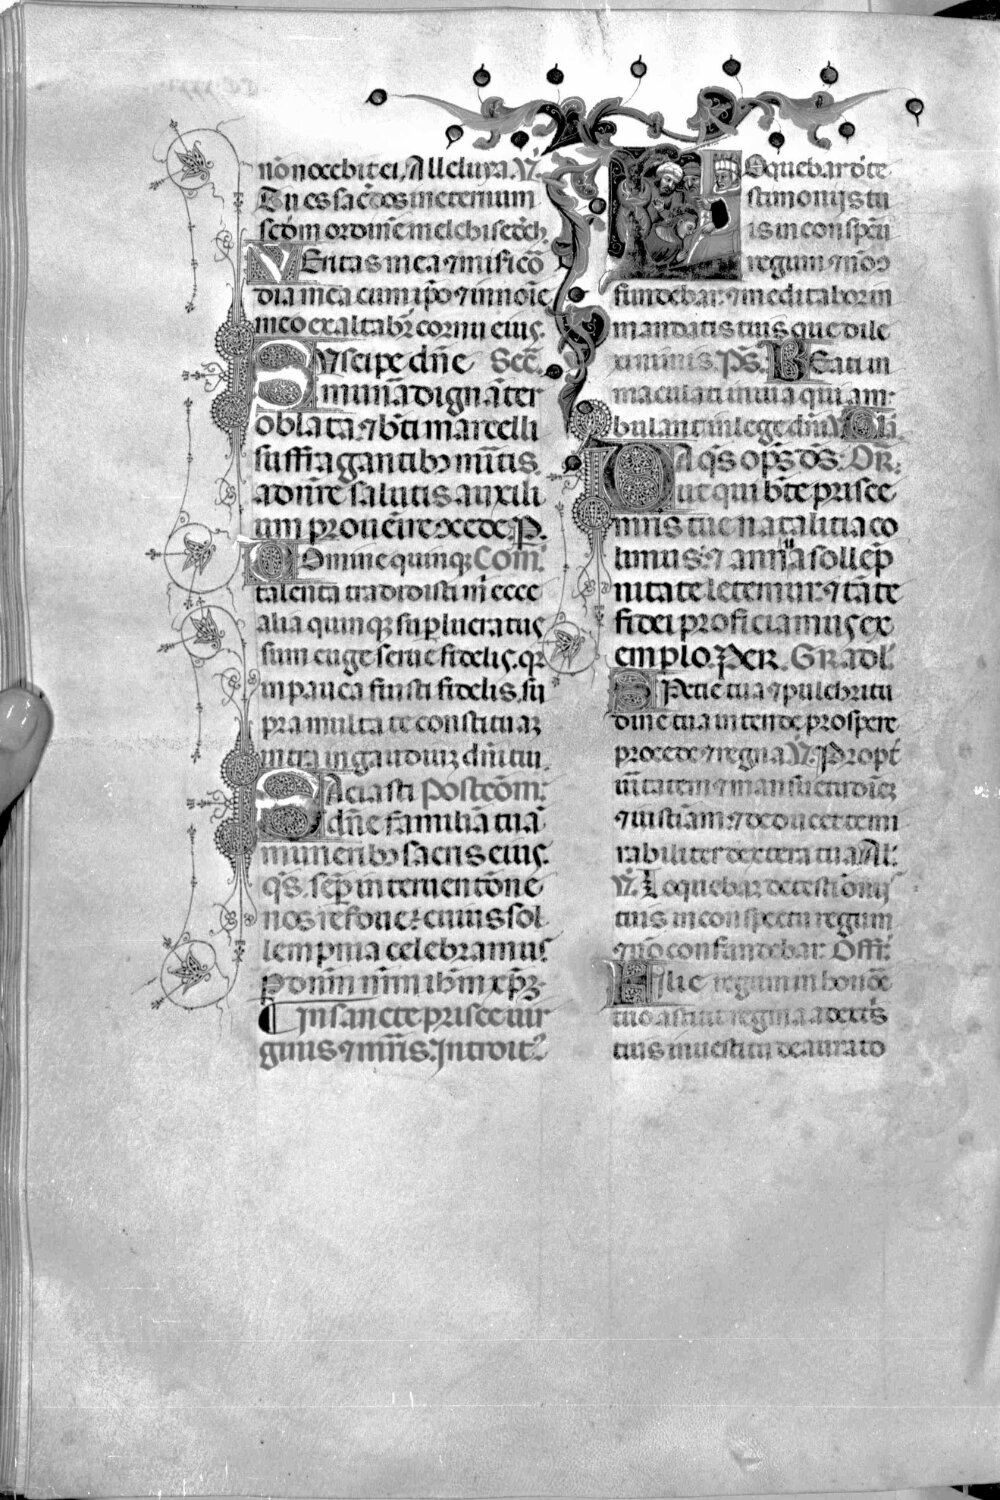 nōnocebit ei, Alleluya. V̄.
Tu es sac̄dos in eternum
sc̄dm ordinē melchisedech.
VEritas mea ⁊ miſic̄o
dia mea cum ip̄o ⁊ in noīe
meo exaltabr̄ cornu eius.
SVscipe dn̄e Sec̄.
munā dignāter
oblata, ⁊ bt̄i marcelli
suffragantibꝫ mīt̄is.
ad nr̄e salutis auxili
um prouenīre ↄcede. P.
DOmine quinqꝫ Com̄.
talenta tradidisti m̄ ecce
alia quinqꝫ sup̄lucratus
sum euge serue fidelis. qꝛ
in pauca fuisti fidelis, su
pra multa te constituaꝫ
intra in gaudiuꝫ dn̄i tui.
SAciasti Postcōm̄.
dn̄e familiā tuā
muneribꝫ sacris eius.
qs̄. sēp̄ interuentōne
nos refoue: cuius sol
lempnia celebramus.
P dominū nr̄m ihm̄ xp̄ꝫ.
¶ In sancte prisce uir
ginis ⁊ mr̄is. Introit̄.
LOquebar d̄ te
stimonijs tu
is in conspc̄tu
regum ⁊ nō ↄ
fundebar: ⁊ meditabor in
mandatis tuis, que dile
xi nimis. Ps̄. BEati in
maculati in uia qui am-
bulant in lege dn̄i V̄. Glā
DA qs̄ oꝑs ds̄. OR̄.
ut qui bt̄e prisce
mr̄is tue natalitia co
limus: ⁊ annua sollēp
nitate letemur: ⁊ tāte
fidei proficiamus ex
emplo. Per. Gradl̄.
SPetie tua ⁊ pulchritu
dine tua intende prospere
procede ⁊ regna V̄. Propt̄
uītatem ⁊ mansuetudīeꝫ
⁊ iustitiam: ⁊ deducet te mi
rabiliter dextera tua. Al̄.
V̄. Loquebar de testīonijs
tuis in conspectu regum
⁊ nō confundebar. Offr̄.
FIlie regum in honōe
tuo astitit regina a dextr̄is
tuis in uestitu deaurato